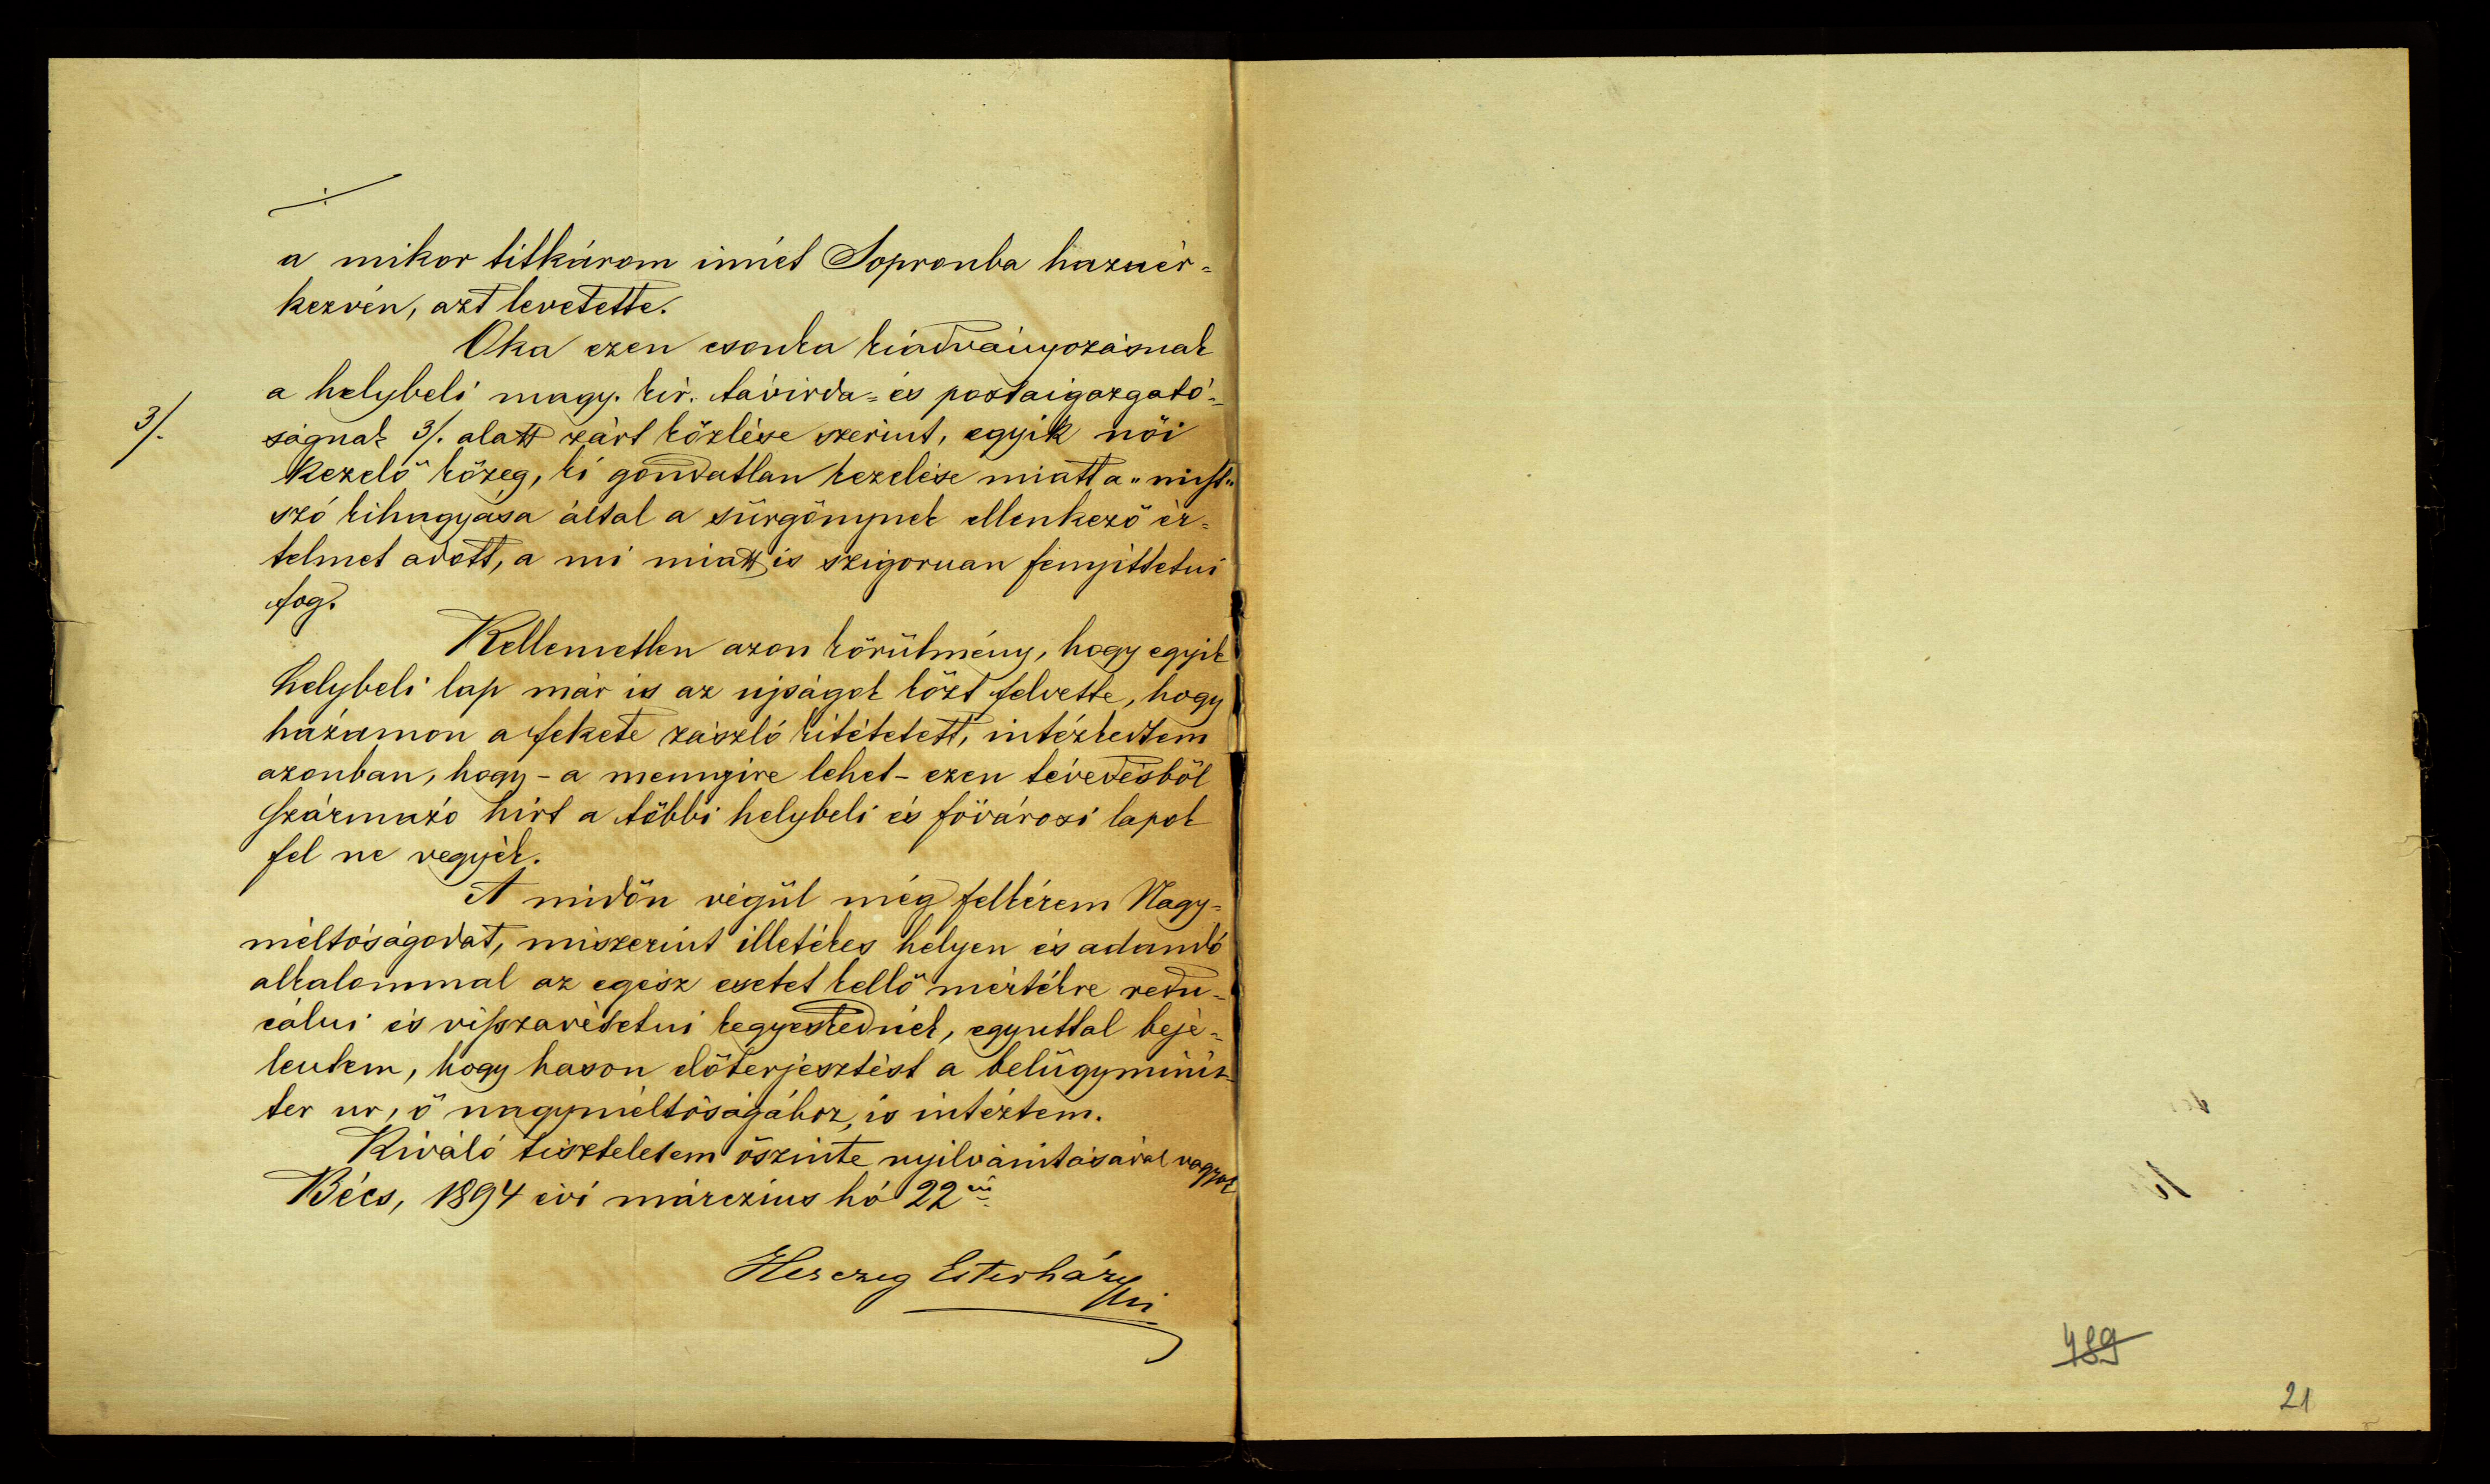 a mikor titkárom innét Sopronba hazaér=
kezvén, azt levetette.
Oka ezen csonka kiadványozásnak
a helybeli magy. kir. távirda= és postaigazgató=
3/.
ságnak 3/. alatt zárt közlése szerint, egyik női
kezelő közeg, ki gondatlan kezelése miatt a „nicht"
szó kihagyása által a sürgönynek ellenkező ér=
telmet adott, a mi miatt is szigoruan fenyittetni
fog.
Kellemetlen azon körülmény, hogy egyik
helybeli lap már is az ujságok közt felvette, hogy
házamon a fekete zászló kitétetett, intézkedtem
azonban, hogy - a mennyire lehet - ezen tévedésből
származó hírt a többi helybeli és fővárosi lapok
fel ne vegyék.
A midőn végül még felkérem Nagy=
méltóságodat, miszerint illetékes helyen és adandó
alkalommal az egész esetet kellő mértékre redu=
cálni és visszavétetni kegyeskednék, egyuttal bejé=
lentem, hogy hason előterjesztést a belügyminis=
ter ur, ő nagyméltóságához, is intéztem.
Kiváló tiszteletem őszinte nyilvánitásával vagyok
Bécs, 1894 évi márczius hó 22én
Herczeg Esterházy
489
21